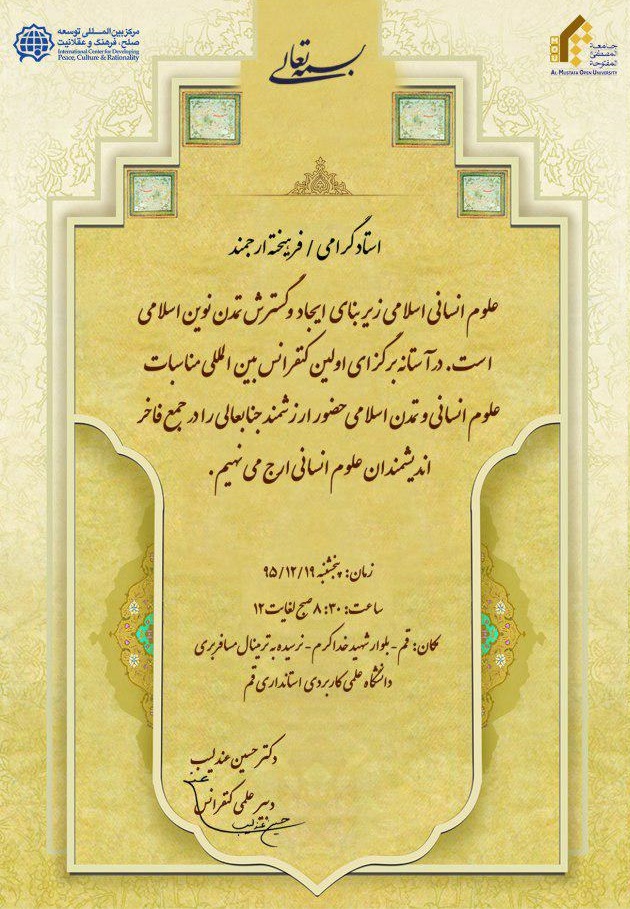 مرکز بین‌المللی توسعه
صلح، فرهنگ و عقلانیت
International Center for Developing
Peace, Culture & Rationality
جامعة
المصطفی
المفتوحة
MOU
AL-MUSTAFA OPEN UNIVERSITY
بسمه تعالی
استاد گرامی / فرهیخته ارجمند
علوم انسانی اسلامی زیربنای ایجاد و گسترش تمدن نوین اسلامی
است. در آستانه برگزای اولین کنفرانس بین المللی مناسبات
علوم انسانی و تمدن اسلامی حضور ارزشمند جنابعالی را در جمع فاخر
اندیشمندان علوم انسانی ارج می نهیم.
زمان: پنجشنبه ۹۵/۱۲/۱۹
ساعت: ۸:۳۰ صبح لغایت ۱۲
مکان: قم - بلوار شهید خداکرم - نرسیده به ترمینال مسافربری
دانشگاه علمی کاربردی استانداری قم
دکتر حسین عندلیب
دبیر علمی کنفرانس
حسین عندلیب